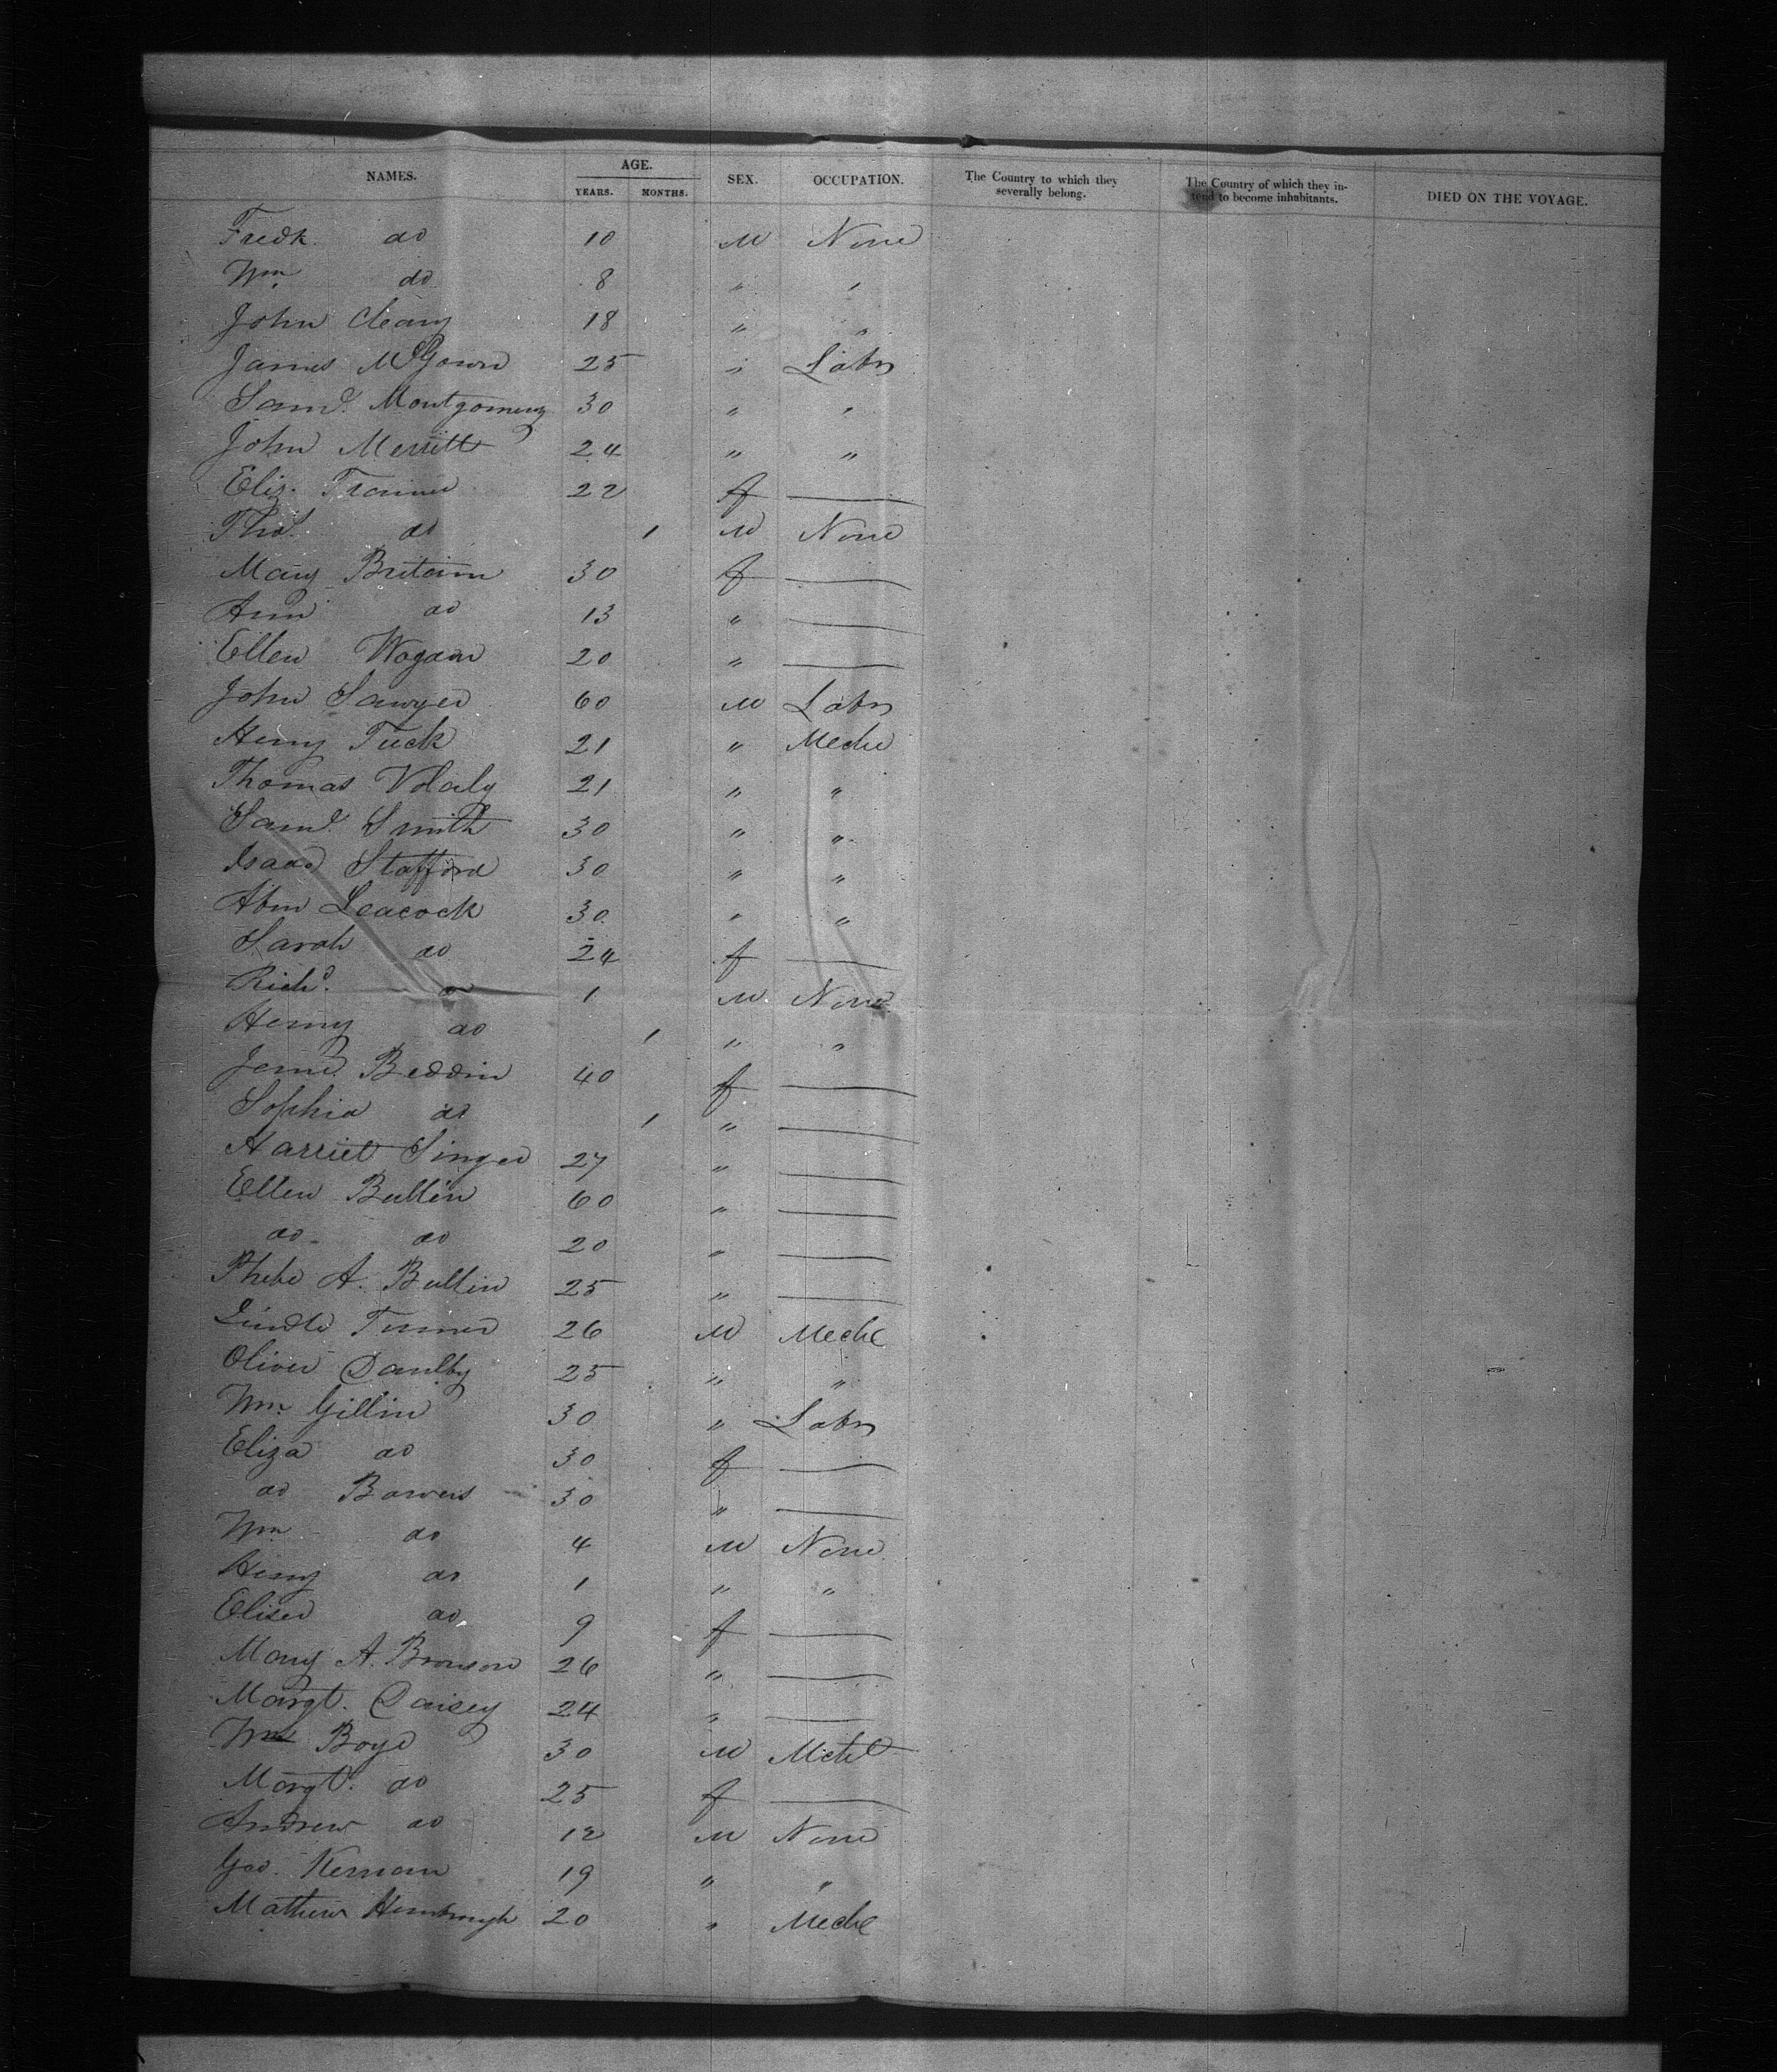 NAMES. AGE. YEARS. MONTHS. SEX. OCCUPATION. The Country to which they severally belong. The Country of which they intend to become inhabitants. DIED ON THE VOYAGE.
Fredk. do 10 M None
Wm. do 8 " "
John Cleary 18 " "
James McGown 25 " Labr
Saml. Montgomery 30 " "
John Merritt 24 " "
Eliz. Trainer 22 f —
Thos. do 1 M None
Mary Britain 30 f —
Ann do 13 " —
Ellen Wogan 20 " —
John Sawyer 60 M Labr
Henry Tuck 21 " Mechc
Thomas 21 " "
Saml. Smith 30 " "
Isaac Stafford 30 " "
Abm Leacock 30 " "
Sarah do 24 f —
Richd. do 1 M None
Henry do 1 " "
Jemi. Beddin 40 f —
Sophia do 1 " —
Harriet Singer 27 " —
Ellen Bullin 60 " —
do do 20 " —
Phebe A. Bullin 25 " —
Turner 26 M Mechc
Oliver Daulby 25 " "
Wm. Gillin 30 " Labr
Eliza do 30 f —
do Bowers 30 " —
Wm do 4 M None
Henry do 1 " "
do 9 f —
Mary A. Bronson 26 " —
Margt. Daisey 24 " —
Wm Boyd 30 M Mechc
Margt. do 25 f —
Andrew do 12 M None
Geo. Kernan 19 " "
Mathew 20 " Mechc